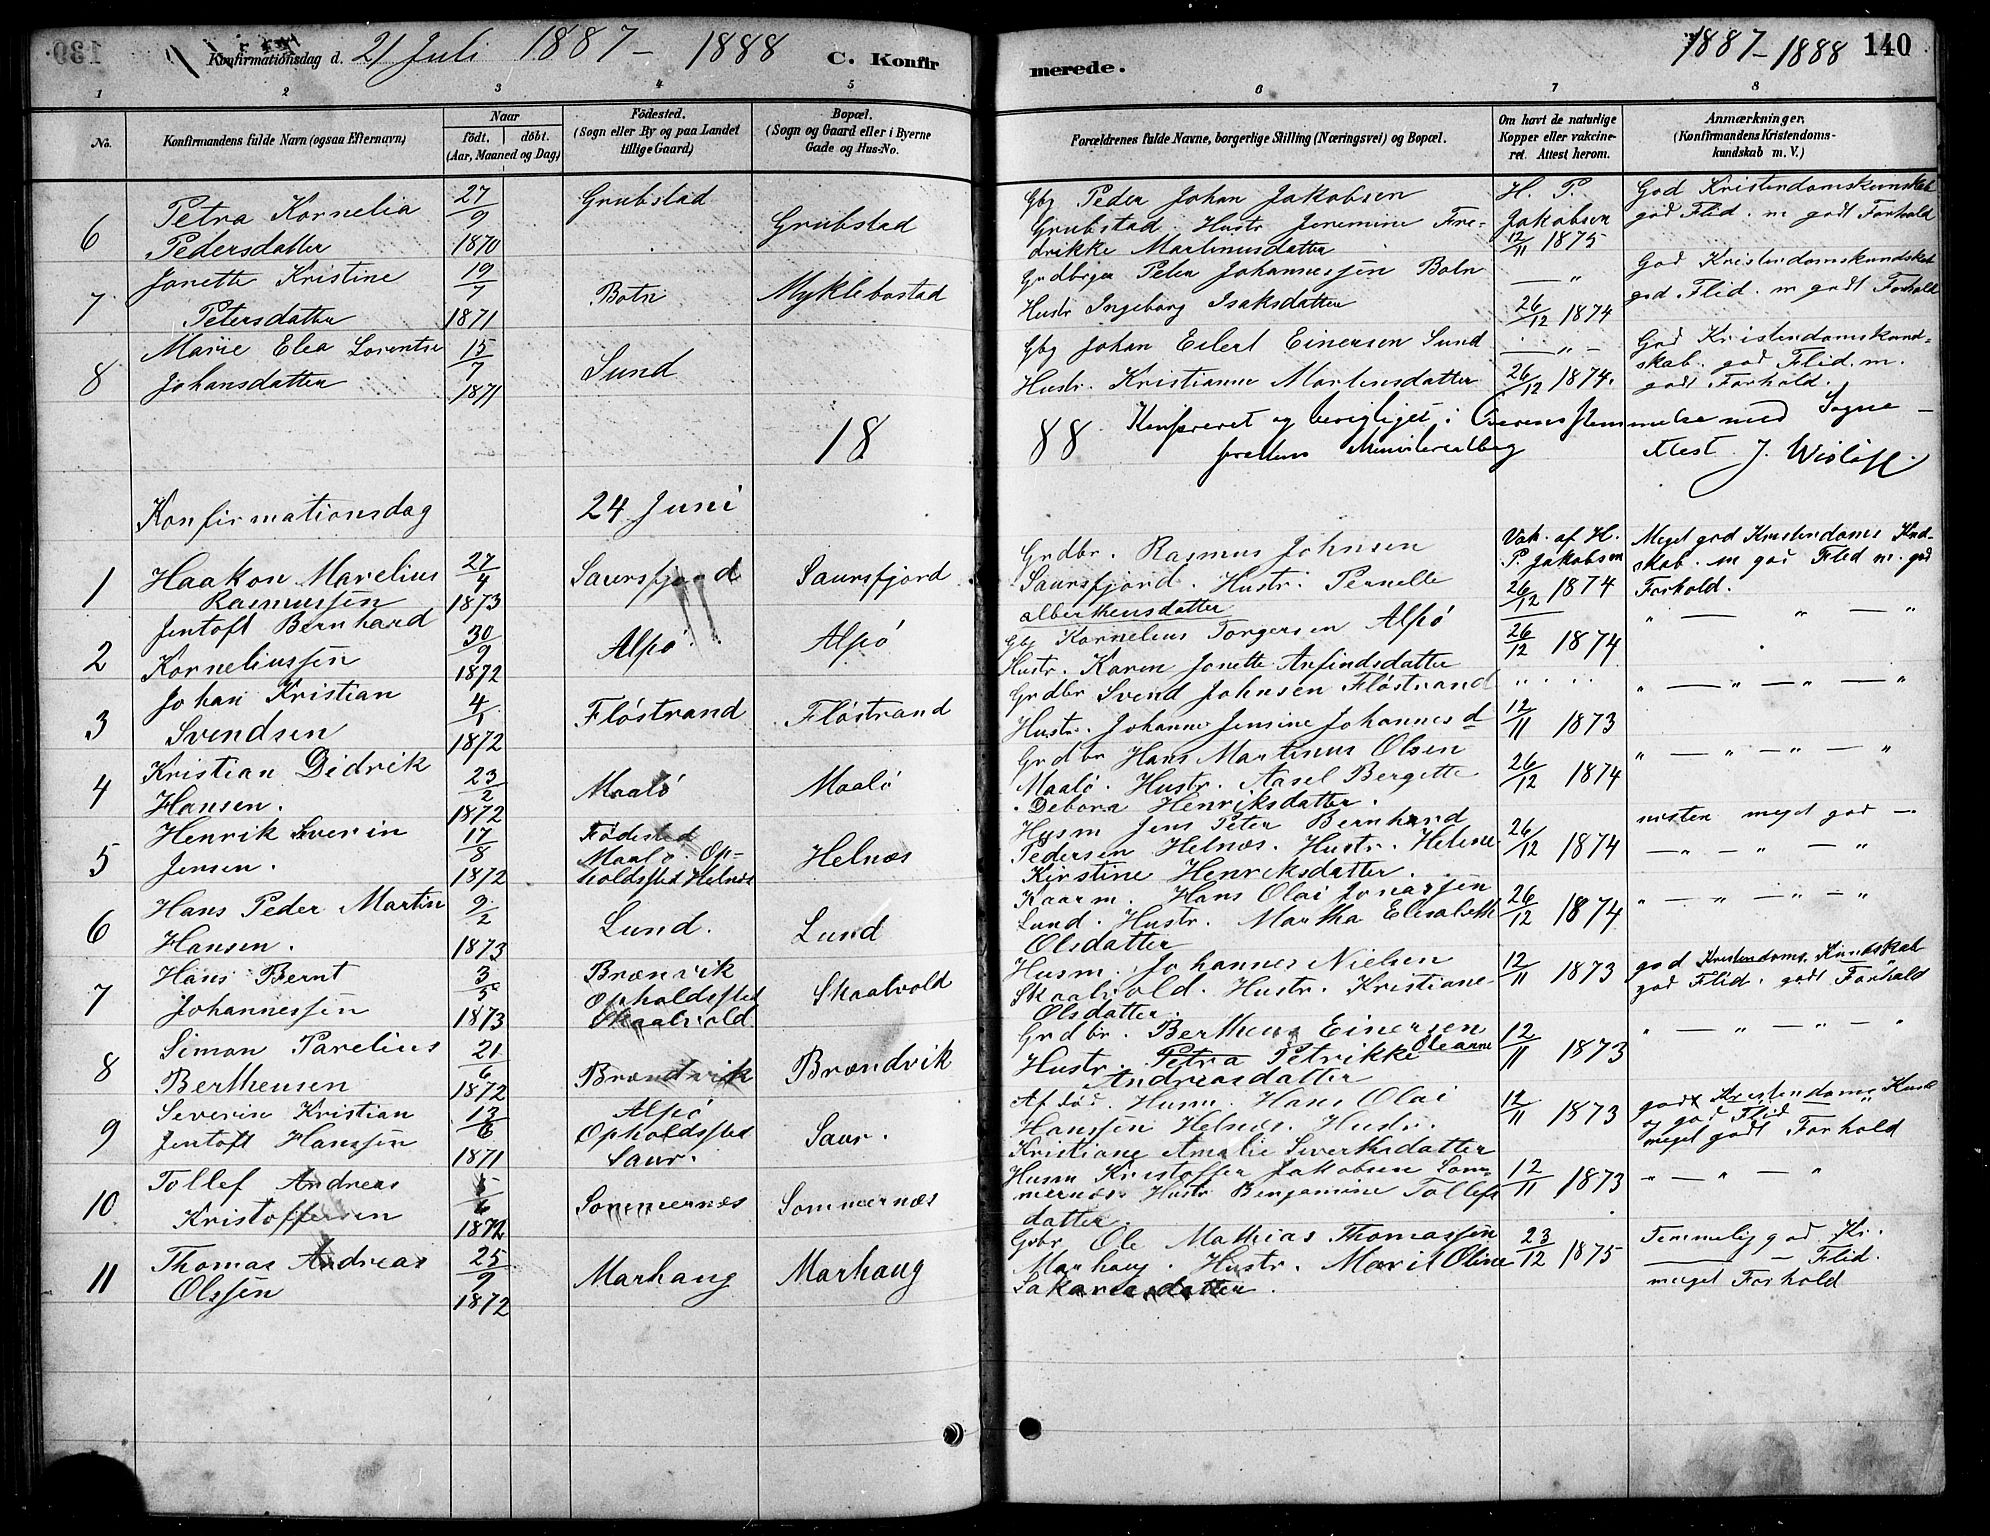 Konfirmationsdag d. 21 Juli 1887 – 1888 C. Konfir
merede. 1887 – 1888 140
1 2 3 4 5 6 7 8
No.
Konfirmandens fulde Navn (ogsaa Efternavn)
Naar
födt. döbt.
(Aar, Maaned og Dag)
Födested.
(Sogn eller By og paa Landet
tillige Gaard)
Bopæl.
(Sogn og Gaard eller i Byerne
Gade og Hus-No.
Forældrenes fulde Navne, borgerlige Stilling (Næringsvei) og Bopæl.
Om havt de naturlige
Kopper eller vakcine-
ret. Attest herom.
Anmærkninger,
(Konfirmandens Kristendoms-
kundskab m. V.)
6 Petra Kornelia
Pedersdatter
27/9
1870
Grubstad
Grubstad
Gbg Peder Johan Jakobsen
Grubstad Hustr Jeremine Fre-
drikke Martinusdatter
H. P.
Jakobsen
12/11 1875
God Kristendomskundskab
god Flid. m godt Forhold
7 Jonette Kristine
Petersdatter
19/7
1871
Botn
Myklebostad
Grdbrger Peter Johannessen Botn
Hustr Ingeborg Isaksdatter
— "
26/12 1874
God Kristendomskundskab
god Flid. m godt Forhold
8 Marie Elea Lorentse
Johansdatter
15/7
1871
Sund
Gbg Johan Eilert Einersen Sund
Hustr. Kristianne Martinusdatter
— " –
26/12 1874.
God Kristendomskund-
skab. god Flid. m.
godt Forhold.
Konfereret og berigtiget i Overensstemmelse med Sogne-
Attest J. Wisløff.
18
88
Konfirmationsdag
24 Juni
1 Haakon Marelius
Rasmussen
27/4
1873
Saursfjord
Saursfjord
Grdbr. Rasmus Johnsen
Saursfjord. Hustr. Pernelle
alberthensdatter
Vak. af H.
P. Jakobsen
26/12 1874
Meget god Kristendoms Knd-
skab. m god Flid m. god
Forhold.
2 Jentoft Bernhard
Korneliussen
30/9
1872
Alsö
Alsö
Gbg Kornelius Torgersen Alsö
Hustr. Karen Jonette Anfindsdatter
26/12 1874
" — " — "
3 Johan Kristian
Svendsen
4/1
1872
Flöstrand
Flöstrand
Grdbr Svend Johnsen Flöstrand
Hustr. Johanne Jensine Johannesd
12/11 1873
" — " — " — "
4 Kristian Didrik
Hansen.
23/2
1872
Maalö
Maalö
Grdbr Hans Martinus Olsen
Maalö. Hustr. Aasel Bergitte
Debora Henriksdatter.
26/12 1874
" — " — " — "
5 Henrik Severin
Jensen.
17/8
1872
Födested
Maalö. Op-
holdssted Helnæs
Helnæs
Husm Jens Peter Bernhard
Pedersen Helnæs. Hustr. Helene
Kirstine Henriksdatter.
26/12 1874
nesten meget god —
— " — " — "
6 Hans Peder Martin
Hansen.
9/2
1873
Lund.
Lund
Kaarm. Hans Olai Jonassen
Lund. Hustr. Martha Elisabeth
Olsdatter
26/12 1874
" — " — " — "
7 Hans Bernt
Johannessen
3/5
1873
Brænvik
Opholdssted
Skaalvold
Skaalvold
Husm. Johannes Nielsen
Skaalvold. Hustr. Kristiane
Olsdatter.
12/11 1873
god Kristendoms. Kundskab
god Flid. godt Forhold
8 Simon Parelius
Bertheusen
21/6
1872
Brændvik
Brændvik
Grdbr. Bertheus Einersen
Hustr. Petra Petrikke Oleanne
Andreasdatter
12/11 1873
" — " — " — "
9 Severin Kristian
Jentoft Hanssen
13/6
1871
Alsö
Opholdssted
Saur.
Saur.
Afdöd. Husm. Hans Olai
Hanssen Helnæs. Hustr.
Kristiane Amalie Siverthsdatter
12/11 1873
godt Kristendoms Kunds
og god Flid
meget godt Forhold
10 Tollef Andreas
Kristoffersen
5/6
1872
Sommernæs
Sommernæs
Husm Kristoffer Jakobsen Som-
mernæs Hustr Benjamine Tollefs
datter.
12/11 1873
" — " — "
11 Thomas Andreas
Olssen
25/9
1872
Marhaug
Marhaug
Gbr Ole Mathias Thomassen
Marhaug. Hustr. Marit Oline
Sakariasdatter.
23/12 1875
Temmelig god Kr.
— — Flid.
meget Forhold